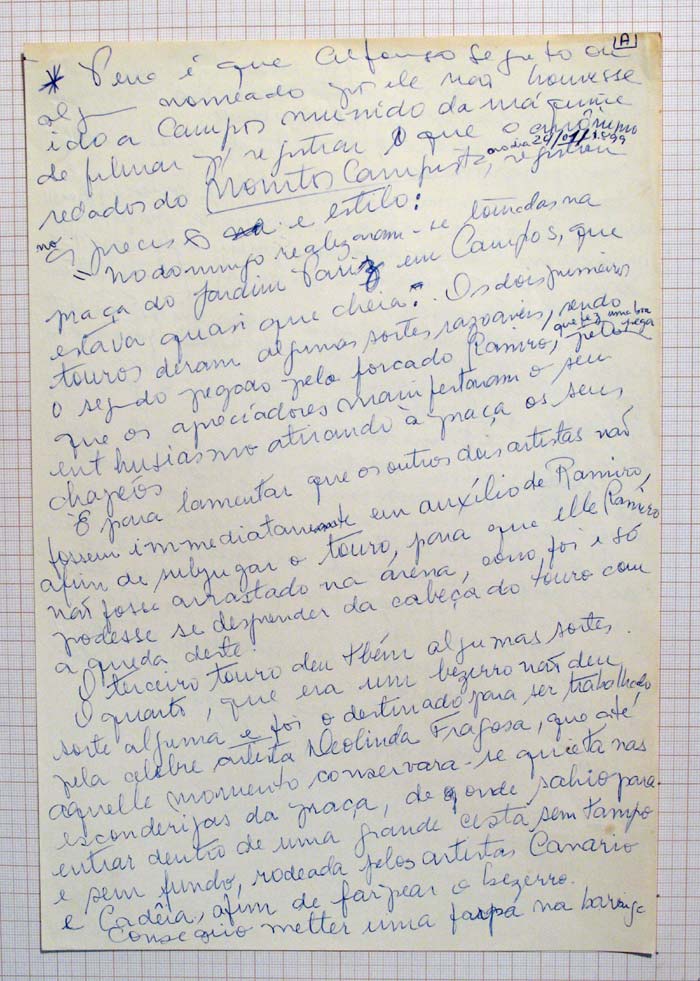 A
* Pena é que Alfonso Segreto ou
alg nomeado por ele não houvesse
ido a Campos munido da máquina
de filmar p/ registrar o que o anônimo
redator do Monitor Campista, no dia 24/01/1899, registrou
no precis e estilo:
"No domingo realizaram-se touradas na
praça do Jardim Pariz em Campos, que
estava quasi que cheia. Os dois primeiros
touros deram algumas sortes razoaveis, sendo
o segundo pegado pelo forcado Ramiro, que fez uma boa pega pelo
que os apreciadores manifestaram o seu
enthusiasmo atirando à praça os seus
chapéos.
"É para lamentar que os outros dois artistas não
fossem immediatamente em auxílio de Ramiro,
afim de subjugar o touro, para que elle Ramiro
não fosse arrastado na arena, como foi e só
podesse se desprender da cabeça do touro com
a queda deste.
O terceiro touro deu tbém algumas sortes.
O quarto, que era um bezerro não deu
sorte alguma e foi o destinado para ser trabalhado
pela celebre artista Deolinda Fragosa, que até
aquelle momento conservara-se quieta nas
esconderijas da praça, de onde sahio para
entrar dentro de uma grande cesta sem tampo
e sem fundo, rodeada pelos artistas Canario
e Cadêia, afim de farpear o bezerro.
Conseguio metter uma farpa na barriga